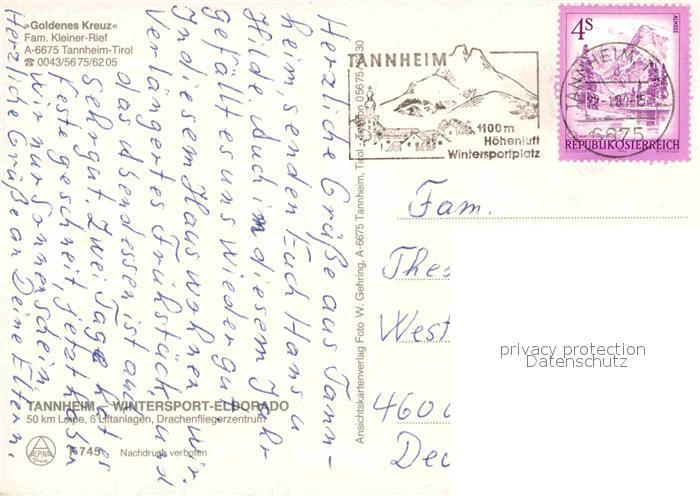 »Goldenes Kreuz«
Fam. Kleiner-Rief
A-6675 Tannheim-Tirol
☎ 0043/5675/6205
TANNHEIM
1100 m
Höhenluft
Wintersportplatz
4 S
ALMSEE
REPUBLIK ÖSTERREICH
TANNHEIM
6675
Herzliche Grüße aus Tann-
heim senden Euch Hans u
Hilde. Auch in diesem Jahr
gefällt es uns wieder gut.
In diesem Haus wohnen wir.
Verlängertes Frühstück und
das Abendessen ist auch
sehr gut. Zwei Tage hat es
feste geschneit, jetzt haben
wir nur Sonnenschein.
Herzliche Grüße an Deine Eltern.
Ansichtskartenverlag Foto W. Gehring, A-6675 Tannheim, Tirol
Fam.
Thes
West
460
Deu
privacy protection
Datenschutz
TANNHEIM – WINTERSPORT-ELDORADO
50 km Loipe, 6 Liftanlagen, Drachenfliegerzentrum
ALPINA
Nachdruck verboten